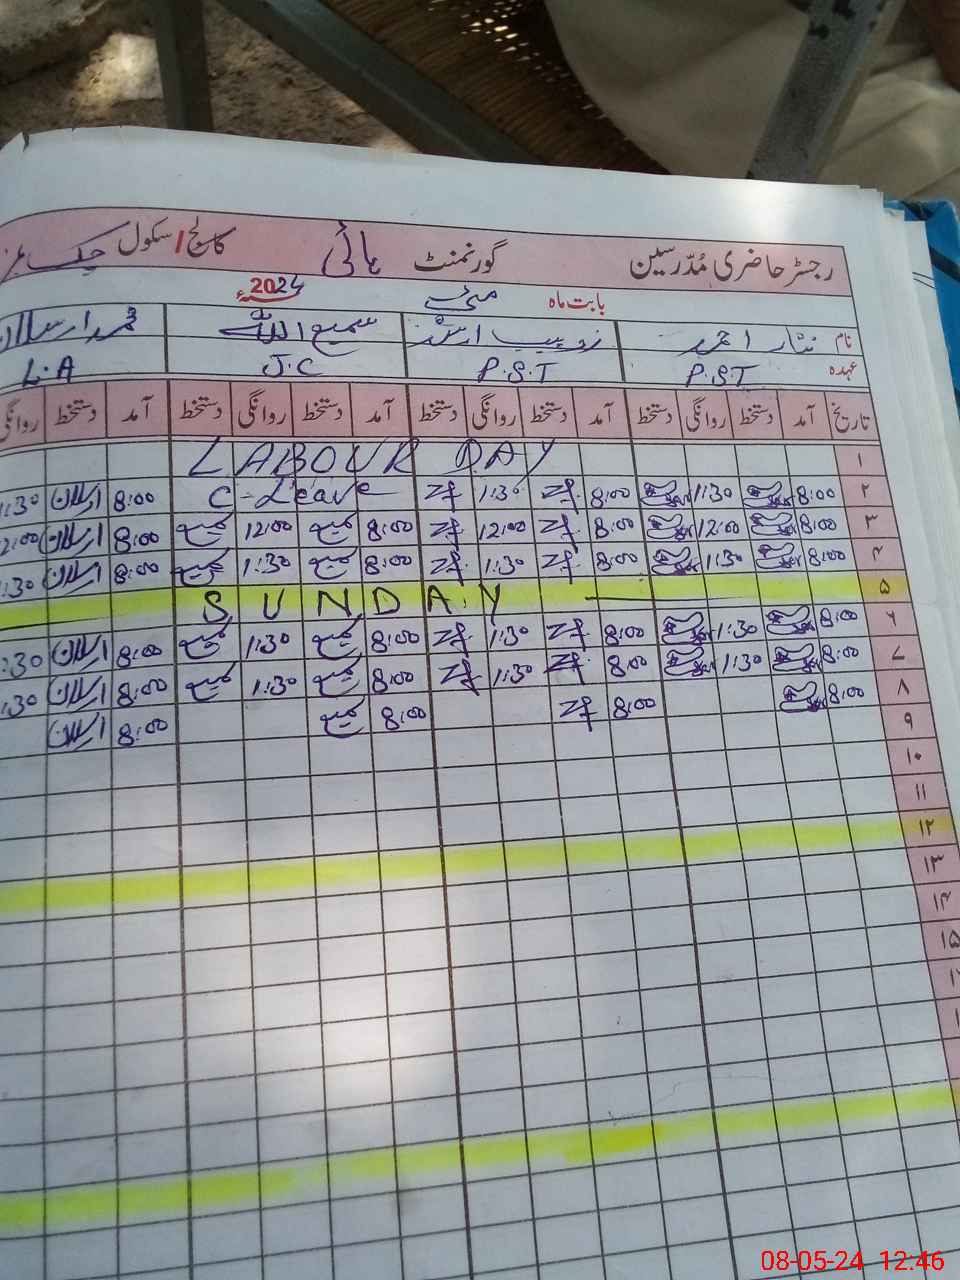 رجسٹر حاضری مُدّرسین گورنمنٹ ہائی کالج/سکول چک
بابت ماہ مئی 2024ء
نام نثار احمد زوہیب ارشد سمیع اللہ محمد ارسلان
عہدہ P.S.T P.S.T J.C L.A
تاریخ آمد دستخط روانگی دستخط آمد دستخط روانگی دستخط آمد دستخط روانگی دستخط آمد دستخط روانگی
۱ LABOUR DAY
۲ 8:00 1:30 8:00 1:30 C-Leave 8:00 ارسلان 1:30
۳ 8:00 12:00 8:00 12:00 8:00 سمیع 12:00 سمیع 8:00 ارسلان 2:00
۴ 8:00 1:30 8:00 1:30 8:00 سمیع 1:30 سمیع 8:00 ارسلان :30
۵ SUNDAY
۶ 8:00 1:30 8:00 1:30 8:00 سمیع 1:30 سمیع 8:00 ارسلان :30
۷ 8:00 1:30 8:00 1:30 8:00 سمیع 1:30 سمیع 8:00 ارسلان :30
۸ 8:00 8:00 8:00 سمیع 8:00 ارسلان
۹
۱۰
۱۱
۱۲
۱۳
۱۴
۱۵
08-05-24 12:46